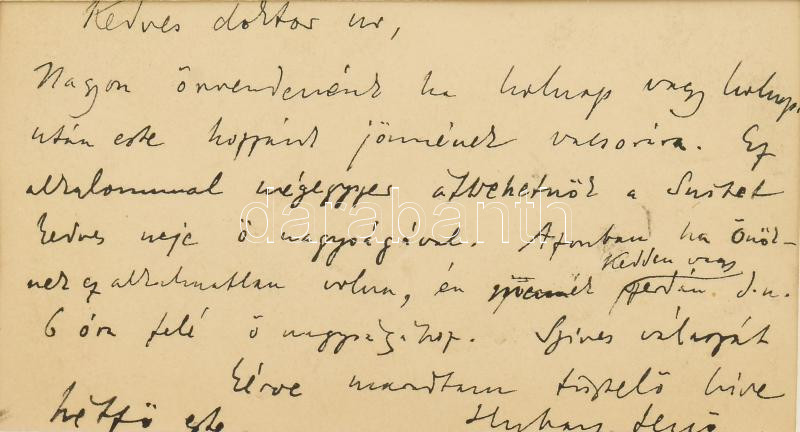 Kedves doktor ur,
Nagyon örvendenénk ha holnap vagy holnap
után este hozzánk jönnének vacsorára. Ez
alkalommal mégegyszer átvehetnők a
kedves neje ő nagyságával. Azonban ha Önök-
Kedden vagy
nek ez alkalmatlan volna, én szerdán d.u.
6 óra felé ő nagyságához. Szives válaszát
kérve maradtam tisztelő hive
hétfő este Hubay Jenő
darabanth